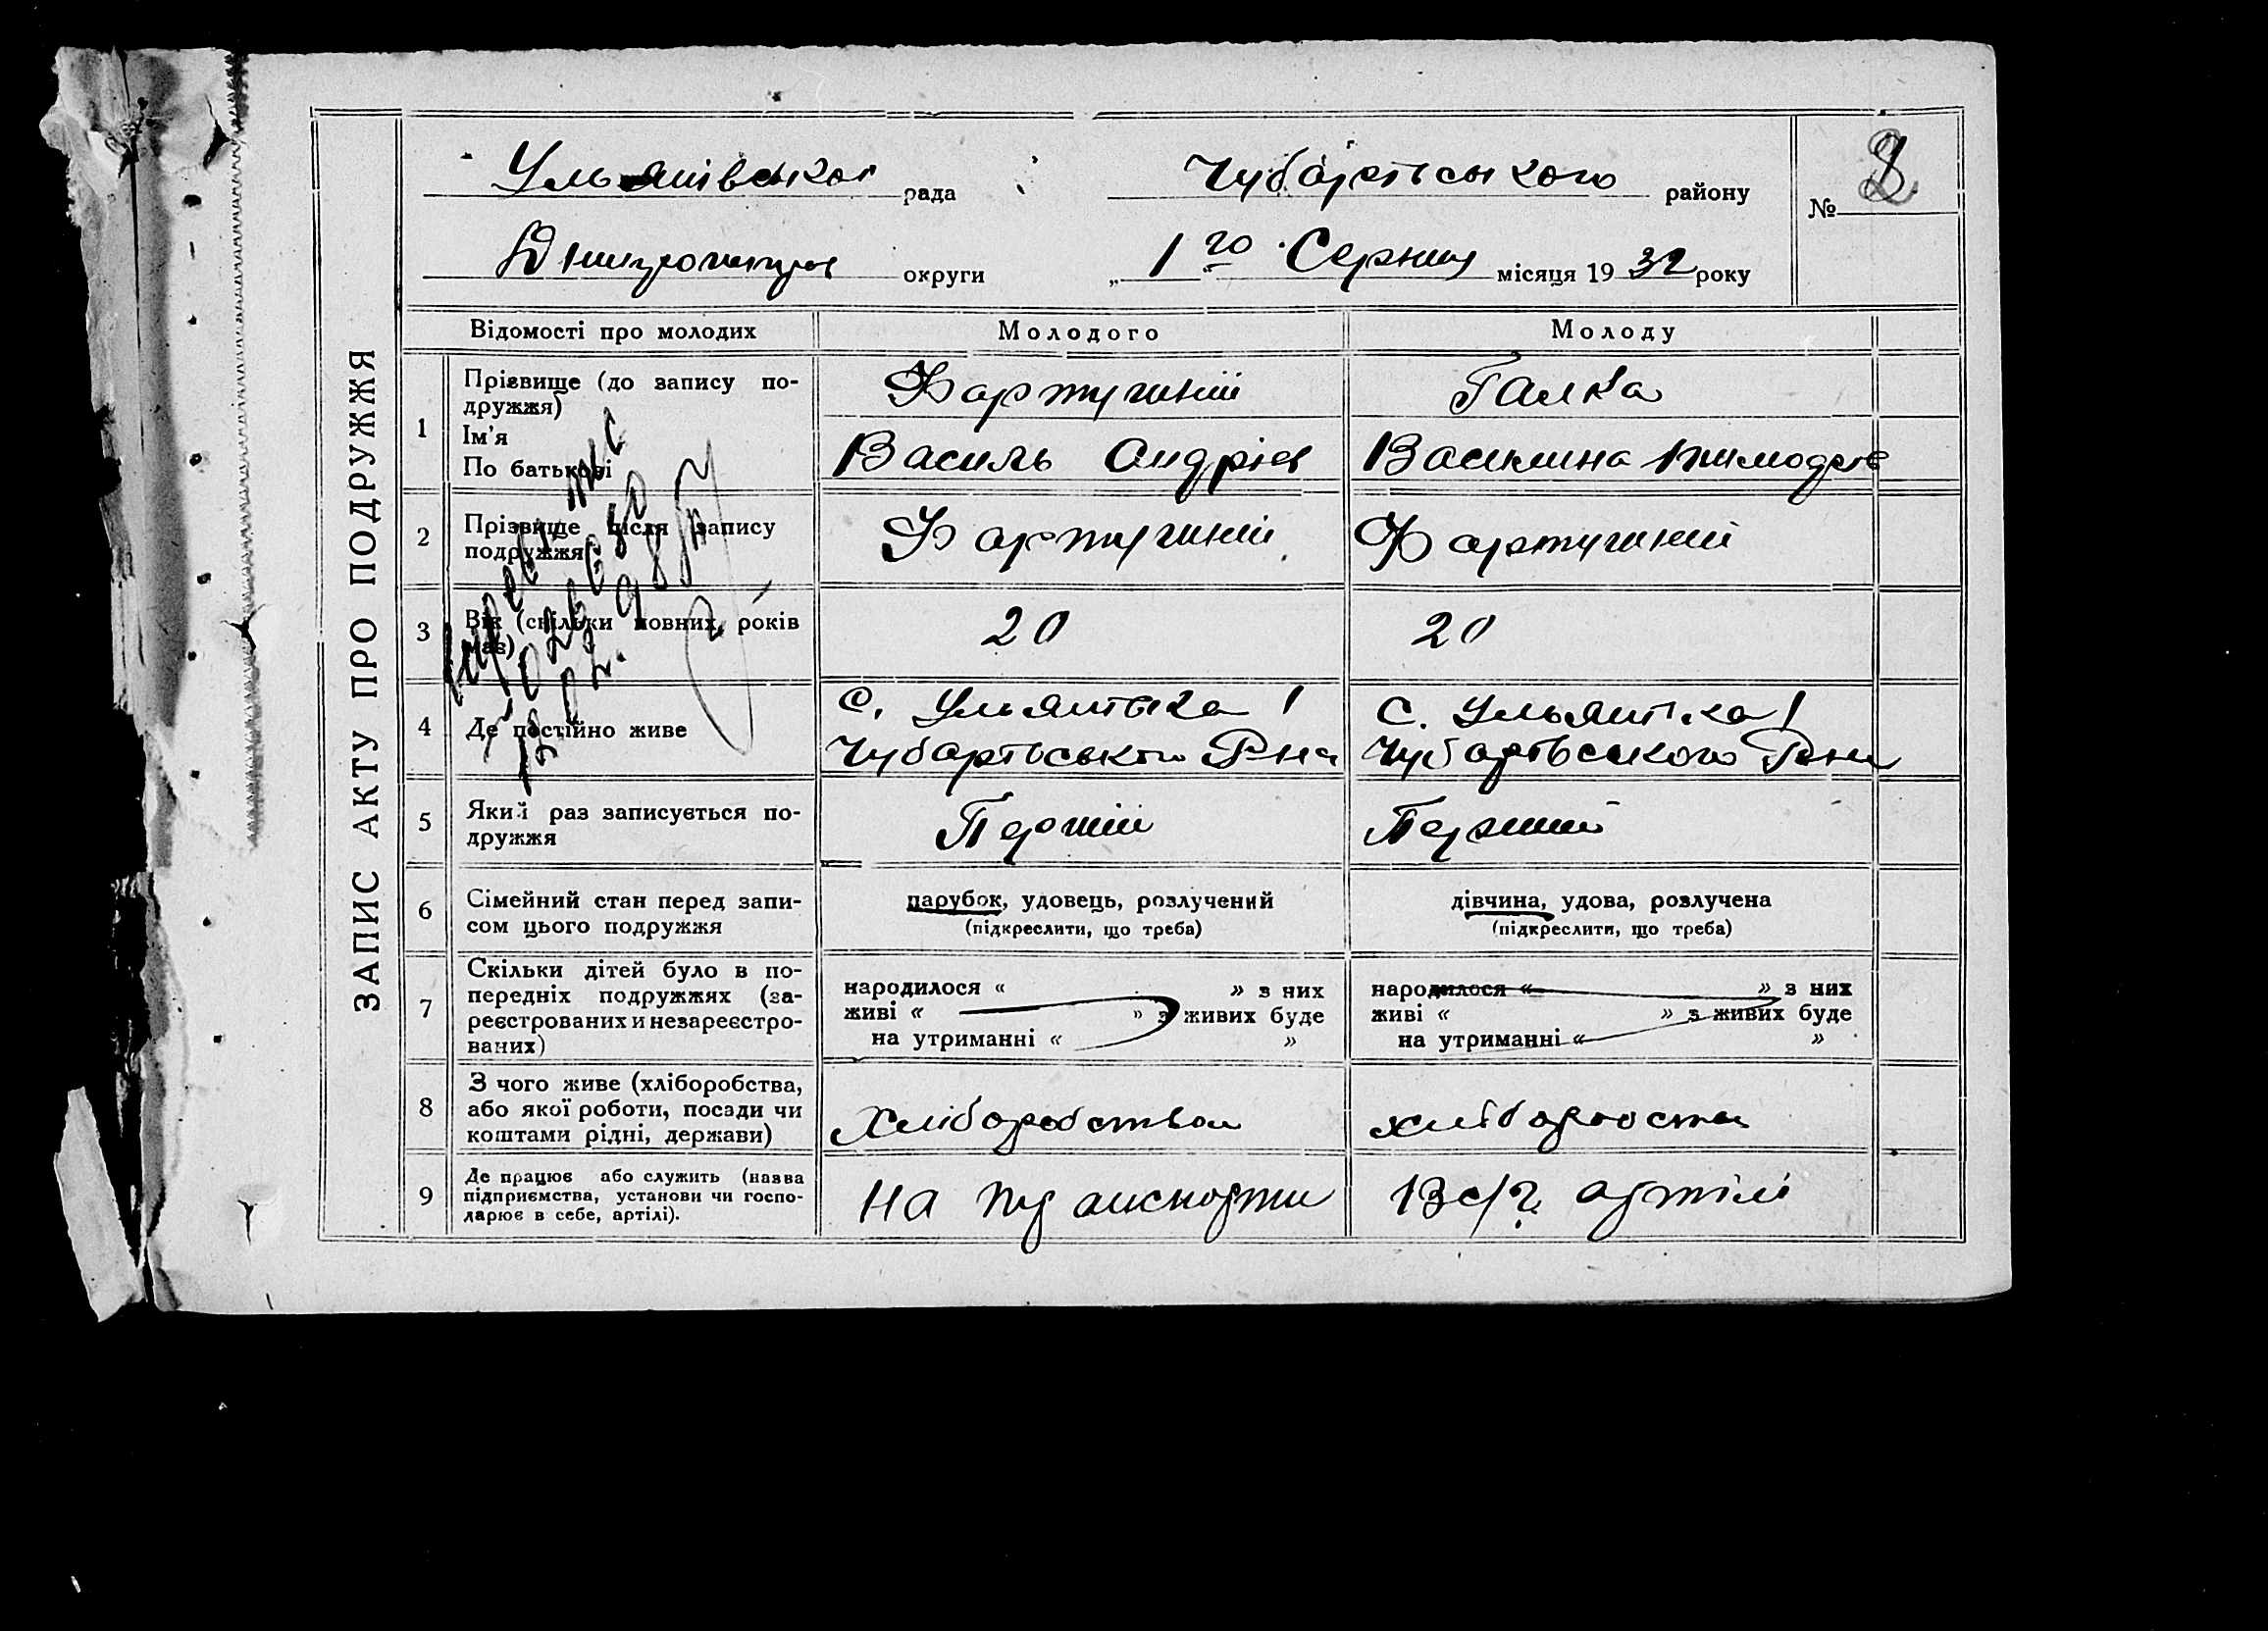 ЗАПИС АКТУ ПРО ПОДРУЖЖЯ
Ульянівської рада Чубарівського району № 8
округи „1го" Серпня місяця 1932 року
Відомості про молодих Молодого Молоду
1 Прізвище (до запису по-
дружжя)
Ім'я
По батькові
Фартушній Галка
Василь Андрієв Василина
2 Прізвище після запису
подружжя
Фартушній Фартушній
3 Вік (скільки повних років
має)
20 20
4 Де постійно живе
с. Ульянівка 1 с. Ульянівка 1
Чубарівського Р-на Чубарівського Р-на
5 Який раз записується по-
дружжя
Перший Перший
6 Сімейний стан перед запи-
сом цього подружжя
парубок, удовець, розлучений дівчина, удова, розлучена
(підкреслити, що треба) (підкреслити, що треба)
7 Скільки дітей було в по-
передніх подружжях (за-
реєстрованих и незареєстро-
ваних)
народилося « » з них народилося « » з них
живі « » з живих буде живі « » з живих буде
на утриманні « » на утриманні « »
8 З чого живе (хліборобства,
або якої роботи, посади чи
коштами рідні, держави)
Хліборобством
9 Де працює або служить (назва
підприємства, установи чи госпо-
дарює в себе, артілі).
На транспорти В с/г. артілі